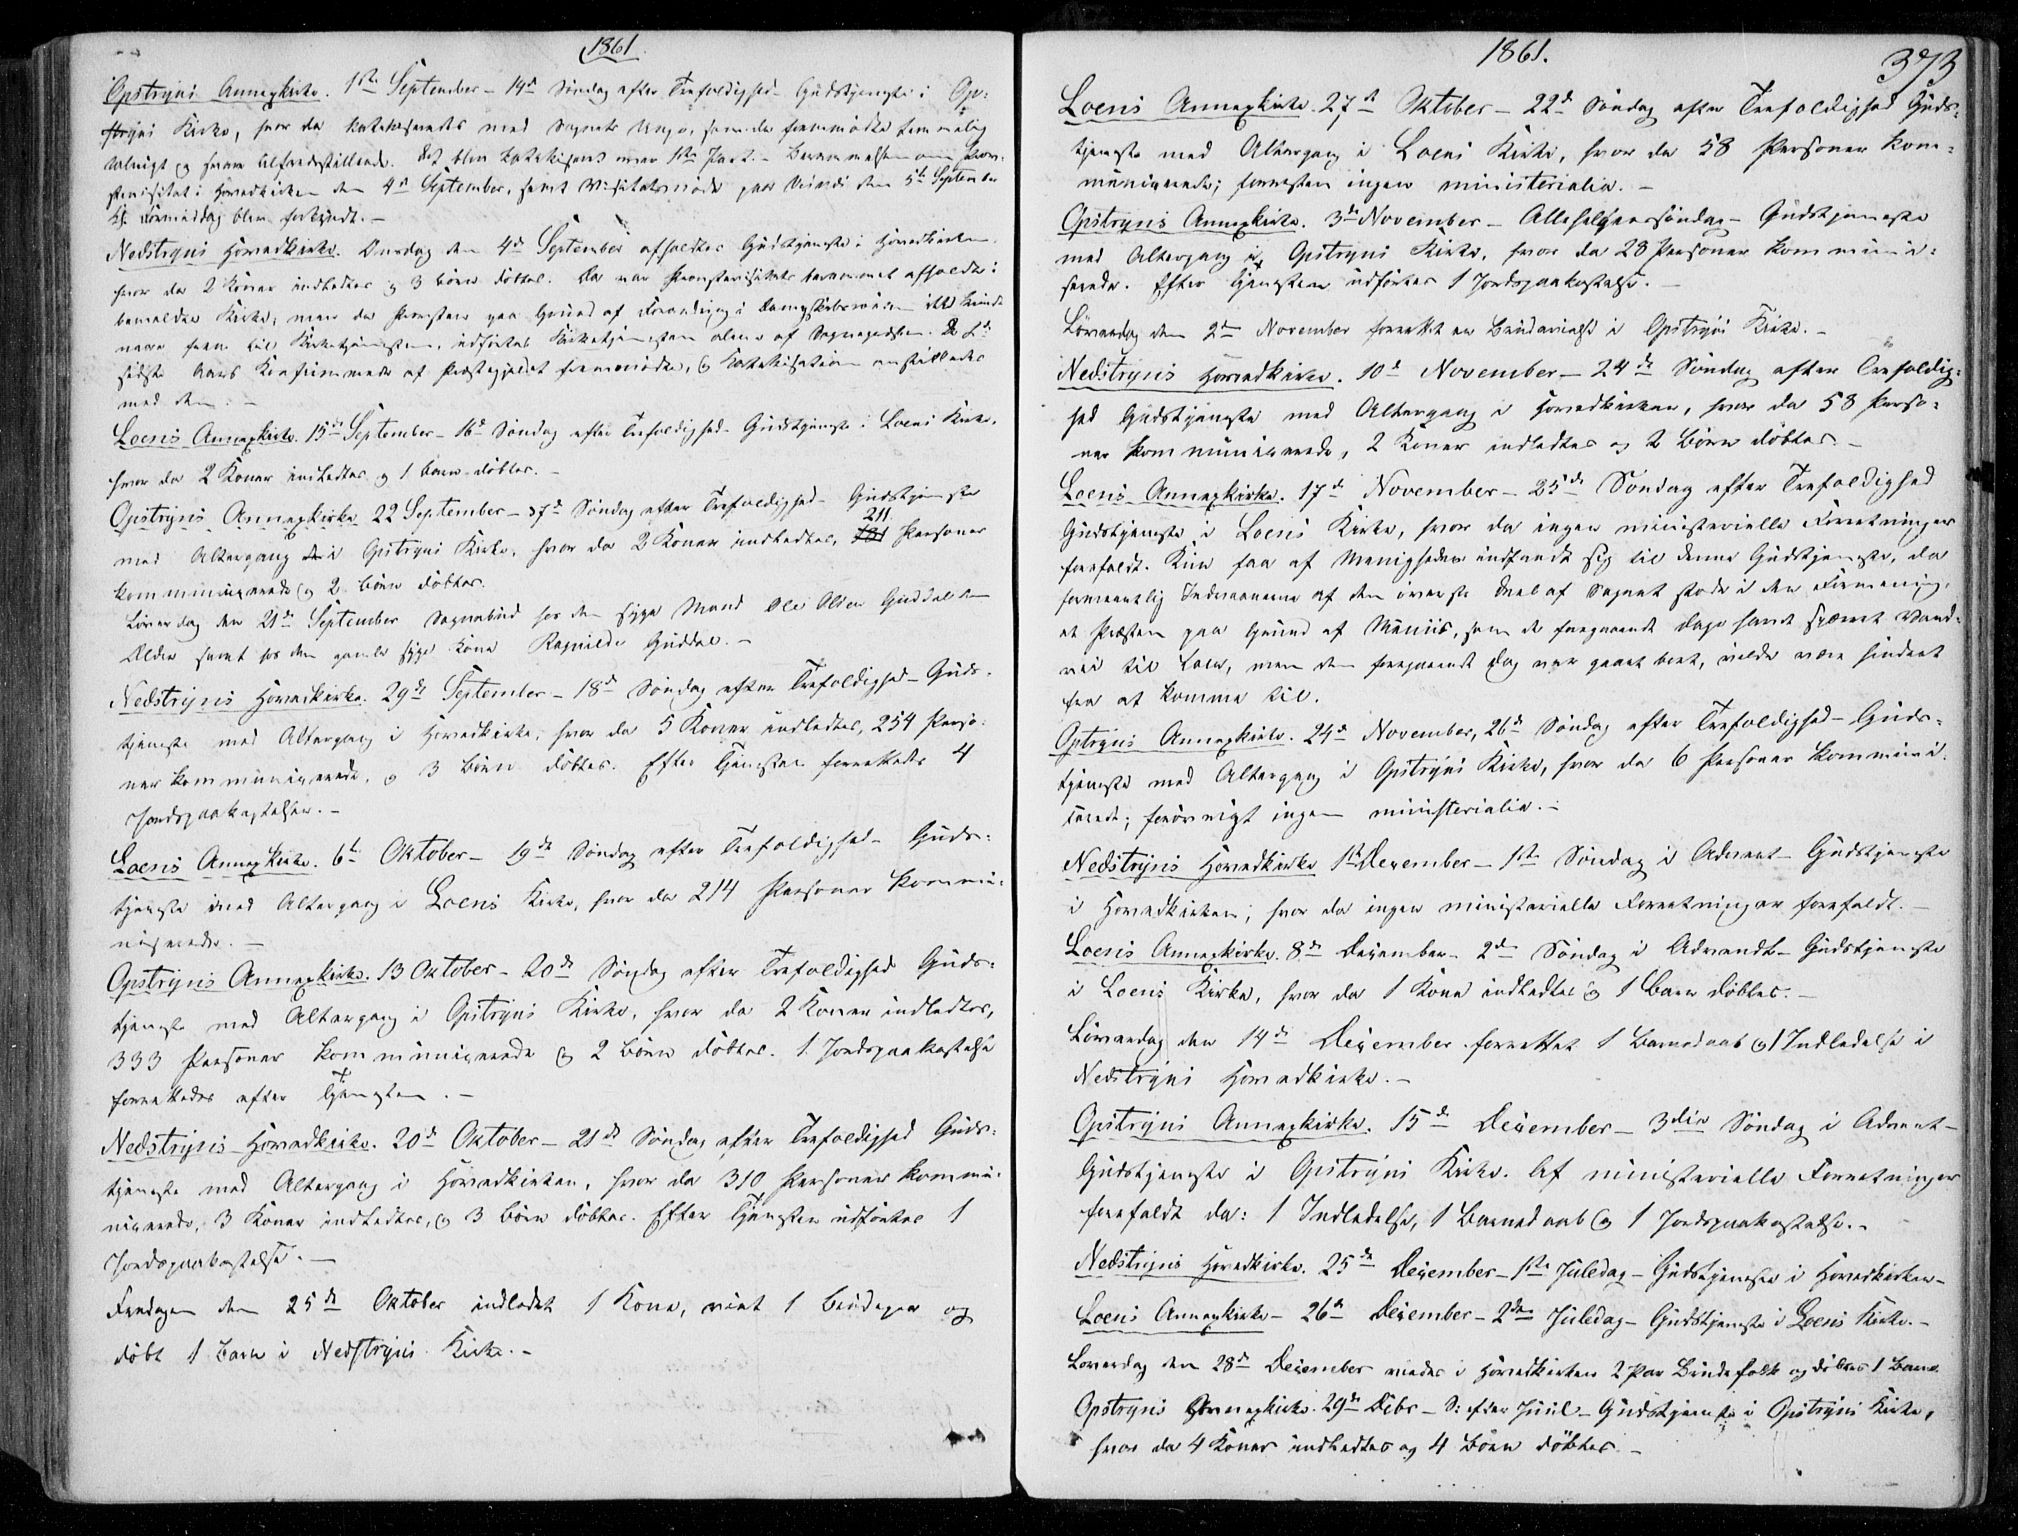 1861.
Opstryns Annexkirke. 1ste September – 14de Søndag efter Trefoldighed – Gudstjeneste i Op-
stryns Kirke, hvor da katekiseredes med Sognets Unge, som da fremmødte temmelig
talrigt og svare tilfredsstillende. Det blev Katekisens 1ste Part. –
stevisitat i Hovedkirken den 4de September, samt Visitatsmøde paa den 5te September
Kl. Formiddag blev forkyndt. –
Nedstryns Hovedkirke. Onsdag den 4de September afholdtes Gudstjeneste i Hovedkirken
hvor da 2 Koner indledtes og 3 Børn døbtes. Da var Provstevisitats berammet afholdt i
bemeldte Kirke, men da Provsten paa Grund af Forandring i Dampskibsruten ikke kunde
være frem til Kirketjenesten, udførtes Kirketjenesten alene af Sognepræsten. De 2de
sidste Aars Konfirmerede af Præstegjeldet fremmødte, og Katekisation anstilledes
med dem. –
Loens Annexkirke. 15de September – 16de Søndag efter Trefoldighed – Gudstjeneste i Loens Kirke,
hvor da 2 Koner indledtes og 1 Barn døbtes. –
Opstryns Annexkirke 22 September – 17de Søndag efter Trefoldighed – Gudstjeneste
med Altergang i Opstryns Kirke, hvor da 2 Koner indledtes, 211 Personer
kommunicerede og 2 Børn døbtes.
Løverdag den 21de September Sognebud hos den syge Mand Ole Olsen Guddal
Olden samt hos den gamle syge Kone Ragnilde Guddal. –
Nedstryns Hovedkirke. 29de September – 18de Søndag efter Trefoldighed – Guds-
tjeneste med Altergang i Hovedkirke, hvor da 5 Koner indledtes, 254 Perso-
ner kommunicerede, og 3 Børn døbtes. Efter Tjenesten forrettedes 4
Jordspaakastelser. –
Loens Annexkirke. 6te Oktober – 19de Søndag efter Trefoldighed – Guds-
tjeneste med Altergang i Loens Kirke, hvor da 214 Personer kommu-
nicerede. –
Opstryns Annexkirke. 13 Oktober – 20de Søndag efter Trefoldighed Guds-
tjeneste med Altergang i Opstryns Kirke, hvor da 2 Koner indledtes,
333 Personer kommunicerede og 2 Børn døbtes. 1 Jordspaakastelse
forrettedes efter Tjenesten. –
Nedstryns Hovedkirke. 20de Oktober – 21de Søndag efter Trefoldighed Guds-
tjeneste med Altergang i Hovedkirken, hvor da 310 Personer kommu-
nicerede, 3 Koner indledtes, og 3 Børn døbtes. Efter Tjenesten udførtes 1
Jordspaakastelse. –
Fredagen den 25de Oktober indledet 1 Kone, viet 1 Brudepar og
døbt 1 Barn i Nedstryns Kirke. –
1861.
373
Loens Annexkirke. 27de Oktober – 22de Søndag efter Trefoldighed Guds-
tjeneste med Altergang i Loens Kirke, hvor da 58 Personer kom-
municerede; forresten ingen ministerialia. –
Opstryns Annexkirke. 3de November – Allehelgenssøndag – Gudstjeneste
med Altergang i Opstryns Kirke, hvor da 28 Personer kommuni-
cerede. Efter Tjenesten udførtes 1 Jordspaakastelse. –
Løverdag den 2den November forrettet en Brudevielse i Opstryns Kirke. –
Nedstryns Hovedkirke. 10de November – 24de Søndag efter Trefoldig-
hed Gudstjeneste med Altergang i Hovedkirken, hvor da 58 Perso-
ner kommunicerede, 2 Koner indledtes og 2 Børn døbtes. –
Loens Annexkirke. 17de November – 25de Søndag efter Trefoldighed
Gudstjeneste i Loens Kirke, hvor da ingen ministerielle Forretninger
forefaldt. Kun faa af Menigheden indfandt sig til denne Gudstjeneste, da
formentlig Indvaanerne af den øverste Deel af Sognet stode i den Formening,
at Præsten paa Grund af Meniis, som de foregaaende Dage havde spærret Vand-
vei til Loen, men den foregaaende Dag var gaaet bort, vilde være hindret
fra at komme til.
Opstryns Annexkirke. 24de November, 26de Søndag efter Trefoldighed – Guds-
tjeneste med Altergang i Opstryns Kirke, hvor da 6 Personer kommuni-
cerede; forøvrigt ingen ministerialia. –
Nedstryns Hovedkirke 1ste December – 1ste Søndag i Advent – Gudstjeneste
i Hovedkirken; hvor da ingen ministerielle Forretninger forefaldt. –
Loens Annexkirke. 8de December – 2den Søndag i Advendt – Gudstjeneste
i Loens Kirke, hvor da 1 Kone indledtes og 1 Barn døbtes. –
Løverdag den 14de December forrettet 1 Barnedaab og 1 Indledelse i
Nedstryns Hovedkirke. –
Opstryns Annexkirke. 15de December – 3die Søndag i Advent –
Gudstjeneste i Opstryns Kirke. Af ministerielle Forretninger
forefaldt da: 1 Indledelse, 1 Barnedaab og 1 Jordspaakastelse. –
Nedstryns Hovedkirke. 25de December – 1ste Juledag – Gudstjeneste i Hovedkirken –
Loens Annexkirke – 26de December – 2den Juledag – Gudstjeneste i Loens Kirke. –
Løverdag den 28de December viedes i Hovedkirken 2 Par Brudefolk og døbtes 1 Barn.
Opstryns Annexkirke. 29de Decbr – S. efter Juul – Gudstjeneste i Opstryns Kirke,
hvor da 4 Koner indledtes og 4 Børn døbtes. –